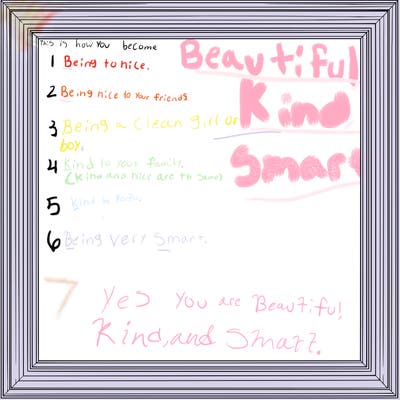 THIS is how You become
Beautiful
Kind
Smart
1 Being to nice.
2 Being nice to Your friends
3 Being a Clean girl or
boy.
4 Kind to Your family.
(kind and nice are th same)
5 Kind to
6 Being Very Smart.
7 Yes You are Beautiful,
Kind, and Smart.